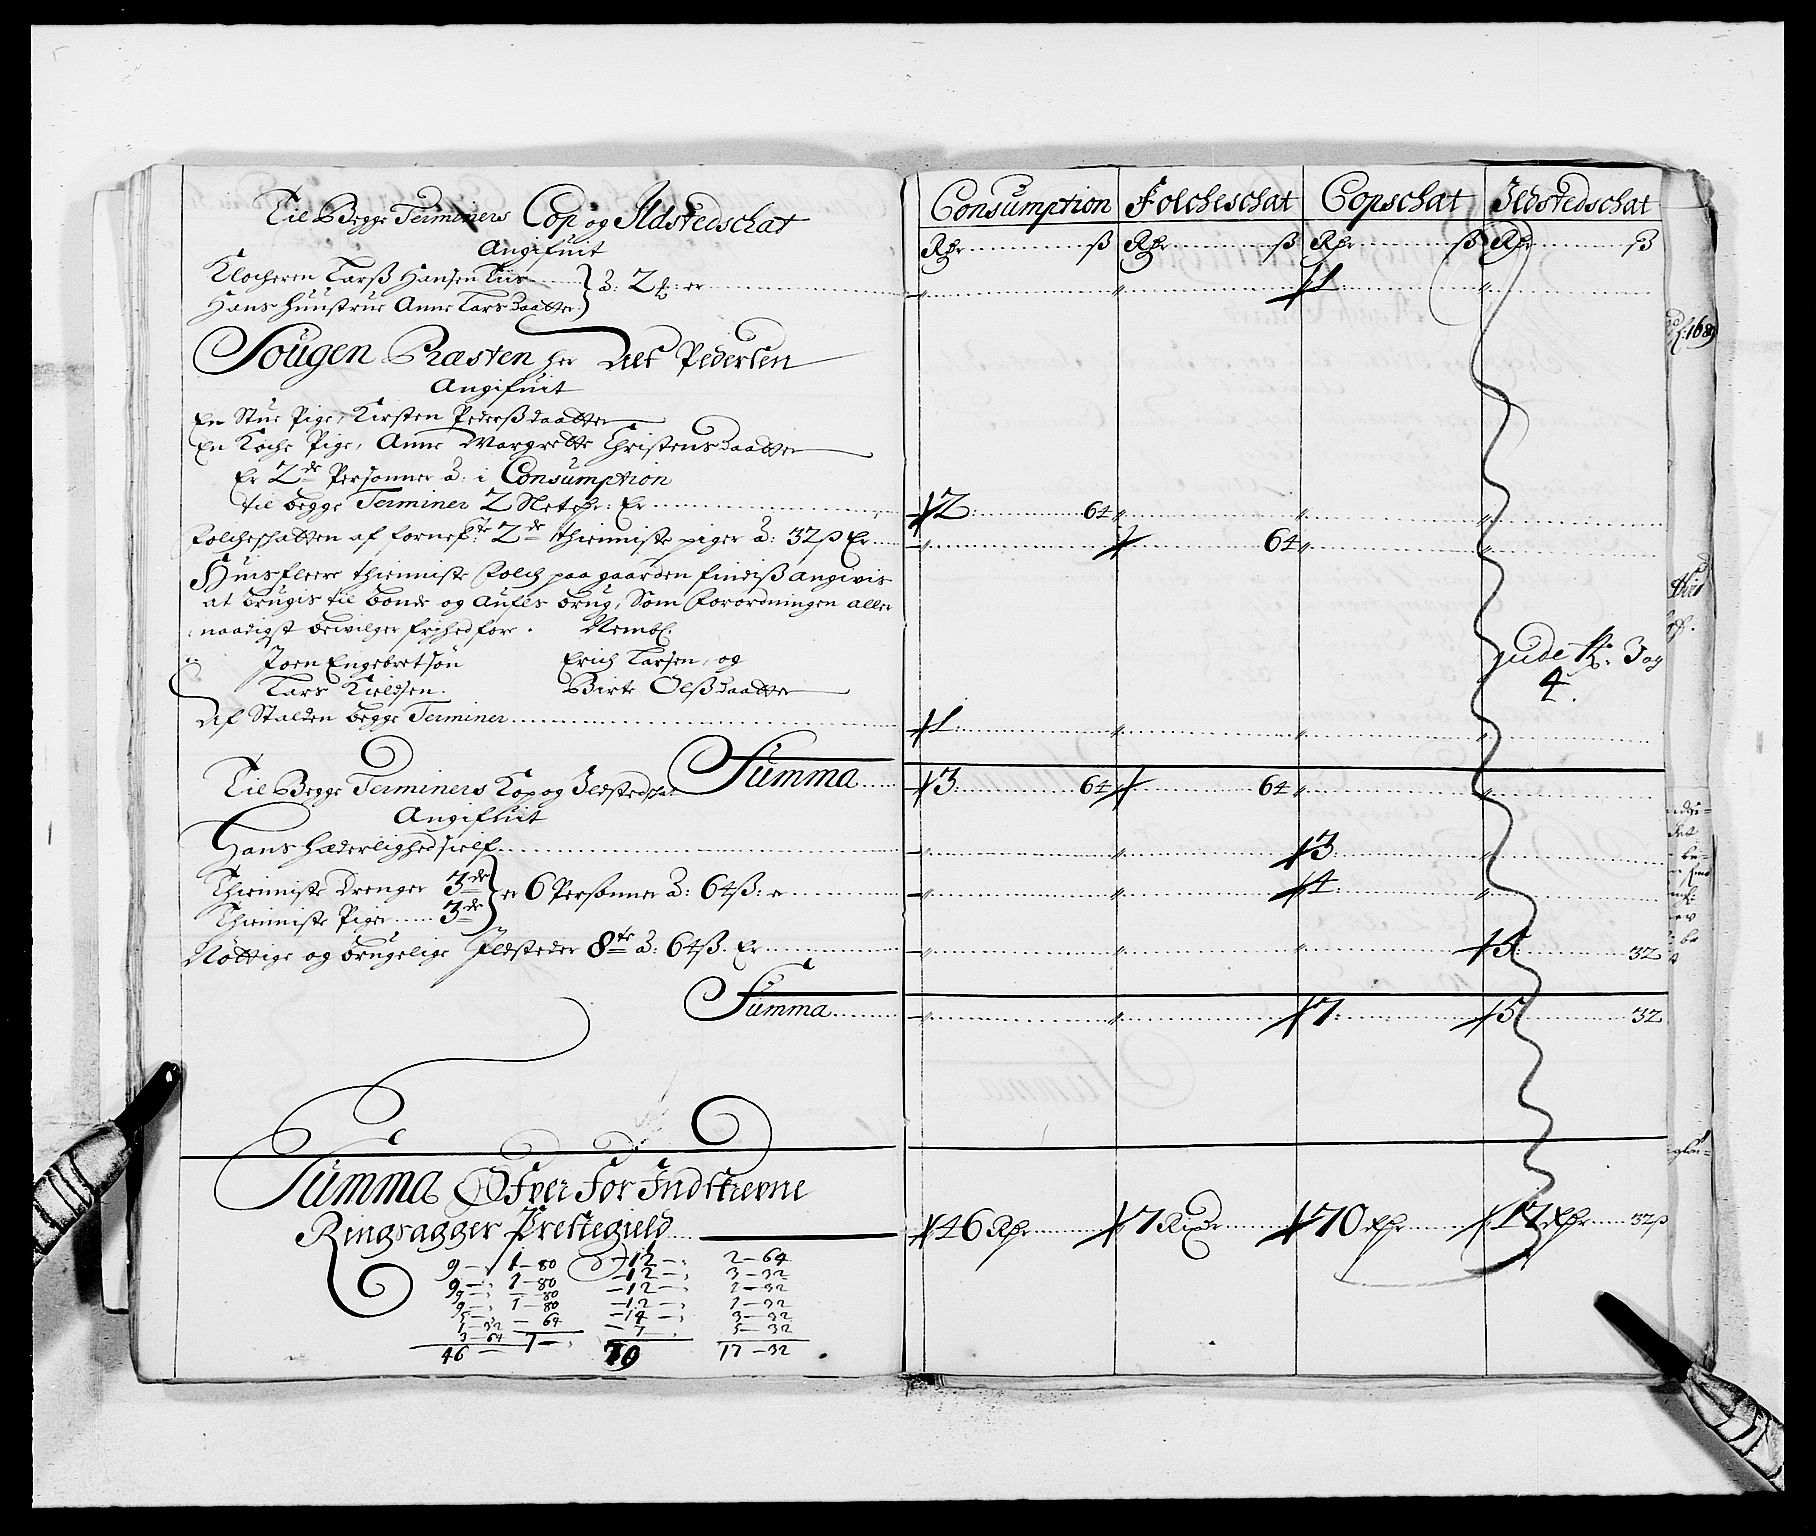 Til Begge Terminers Cop og Ildstedschat
Angifuit
Klocheren Larß Hansen Tiis
Hans Huustrue Anne Lars Daatter } à: 2 er
Sougen Præsten her Alf Pedersen
Angifuit
En Stue Pige, Kirsten Pederßdaatter
En Koche Pige, Anne Margrette Christens Daatter
Er 2de Personner à: i Consumption
til begge Terminer 2 Er
Folcheschatten af 2de thienniste piger à: 32 ß Er
Huis fleere thienniste Folch paa gaarden findiß angivis
at brugis til bonde og Aufls brug, Som Forordningen aller
naadigst bevilger frihed fore. Nembl.
Joen Engebretsøn Erich Larsen, og
Lars Kieldsen. Birte Olßdaatter
Af Stalden begge Terminer
Summa
Til Begge Terminers Kop og Ildstedschat
Angifuit
Hans Hæderlighed sielf
Thienniste Drenger 3de
Thienniste Piger 3de } er 6 Personner à: 64 ß: er
Nøttige og brugelige Ildsteder 8te à: 64 ß. Er
Summa
Summa Ofver For Indskrevne
Ringsagger Prestegield
9 — „ 1 — 80 — 12 — „ 2 — 64
9 — „ 1 — 80 — 12 — „ 3 — 32
9 — „ — 80 — 12 — „ 1 — 32
9 — „ 1 — 80 — 12 — „ 1 — 32
5 — 32 — 64 — 14 — „ 3 — 32
3 — 64 — 7 — „ 5 — 32
46 — 7 — „ 70 17 — 32
Consumption Folcheschat Copschat Ildstedschat
Rdr ß Rdr ß Rdr ß Rdr ß
„ „ 1 „
2 64 „ „ „
„ 64 „ „
3 og
4.
1 „ „ „
3 64 64 „ „
„ „ 3 „
„ „ 4 „
„ „ „ 5 32
„ „ 7 5 32
46 Rdr 7 Rixdr 70 Rdr 17 Rdr 32 ß